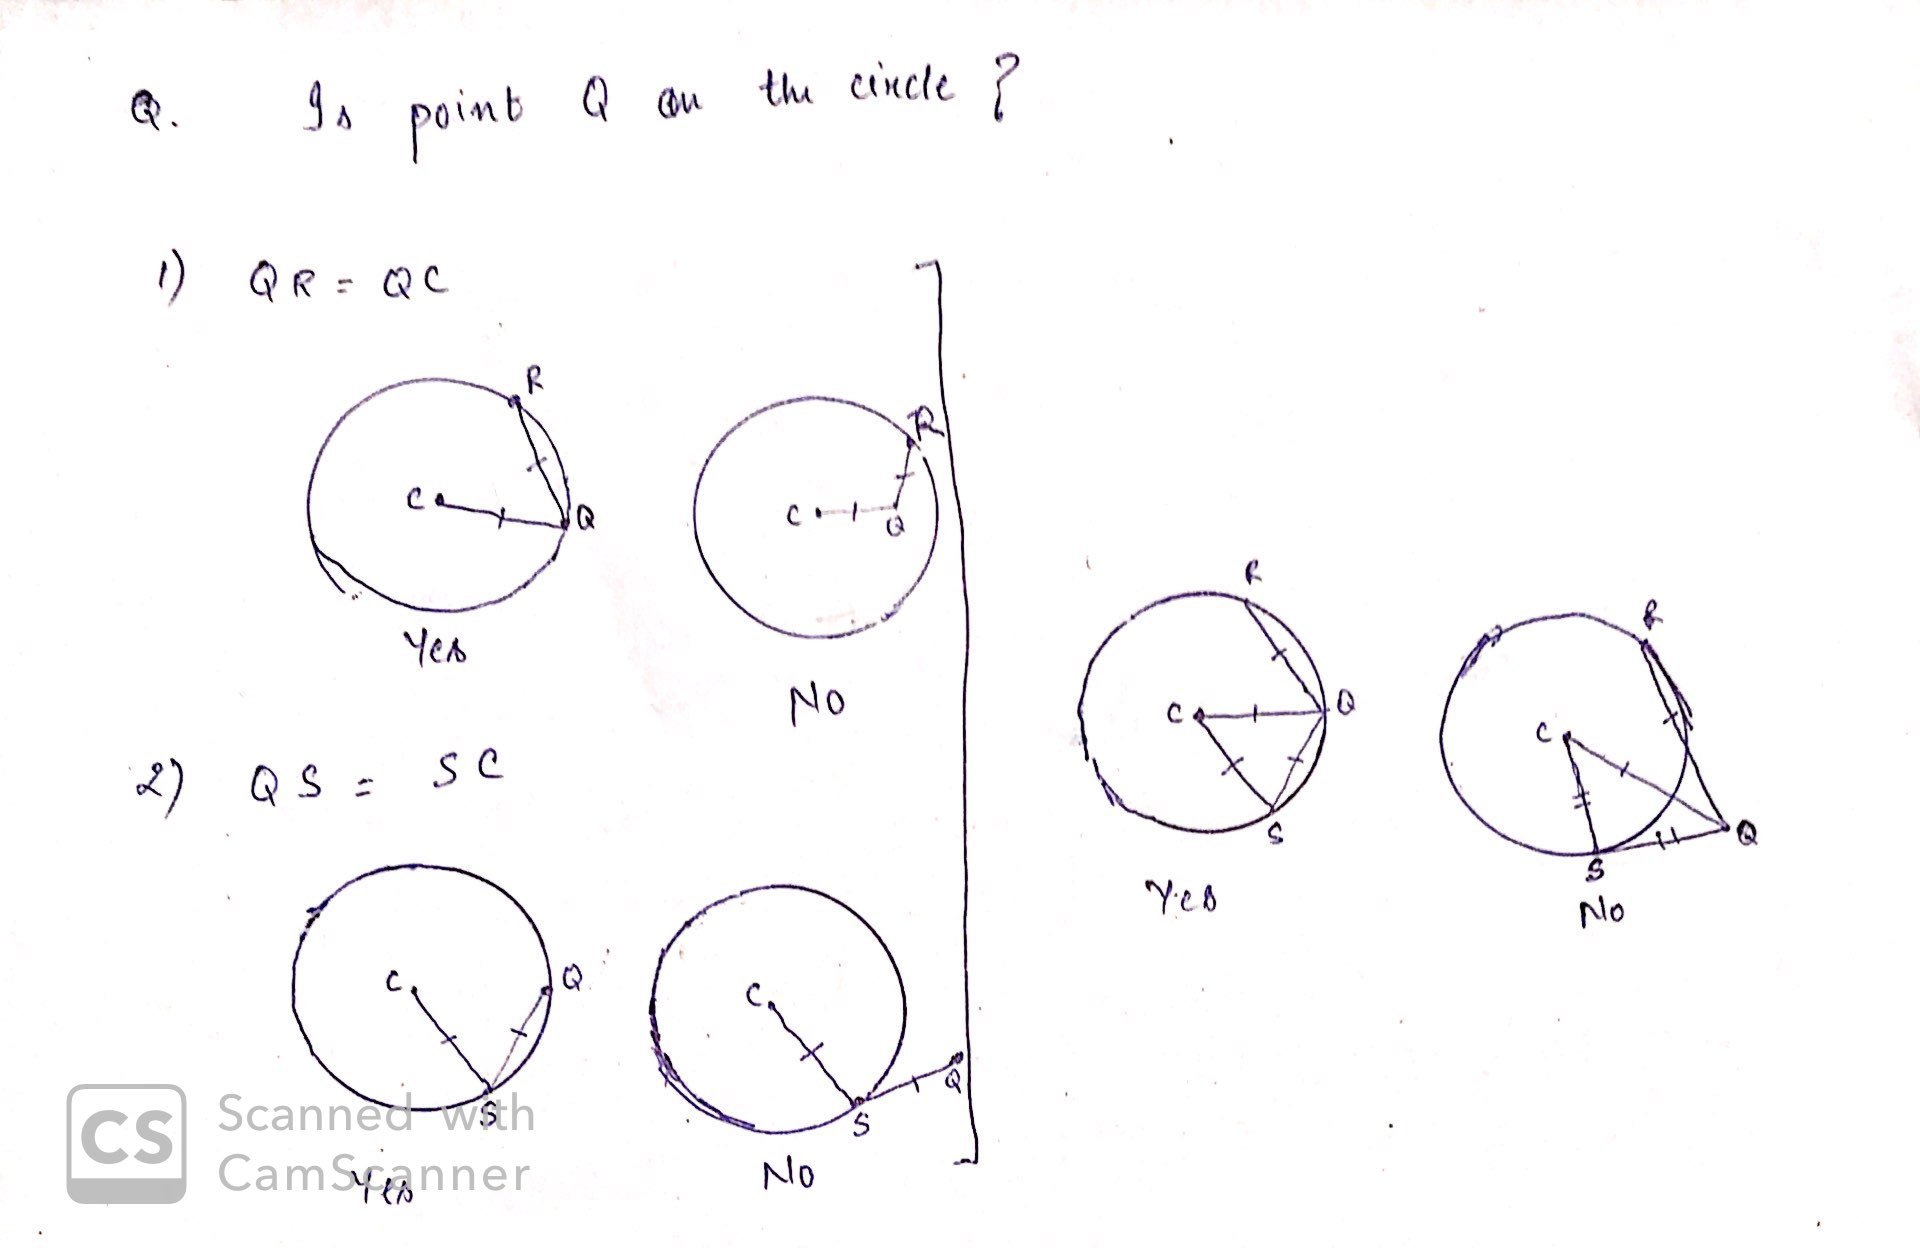 Q. Is point Q on the circle ?
1) QR = QC
R
C
Q
Yes
R
C
Q
NO
2) QS = SC
C
Q
S
Yes
C
S
Q
NO
R
C
Q
S
Yes
R
C
Q
S
No
CS Scanned with
CamScanner